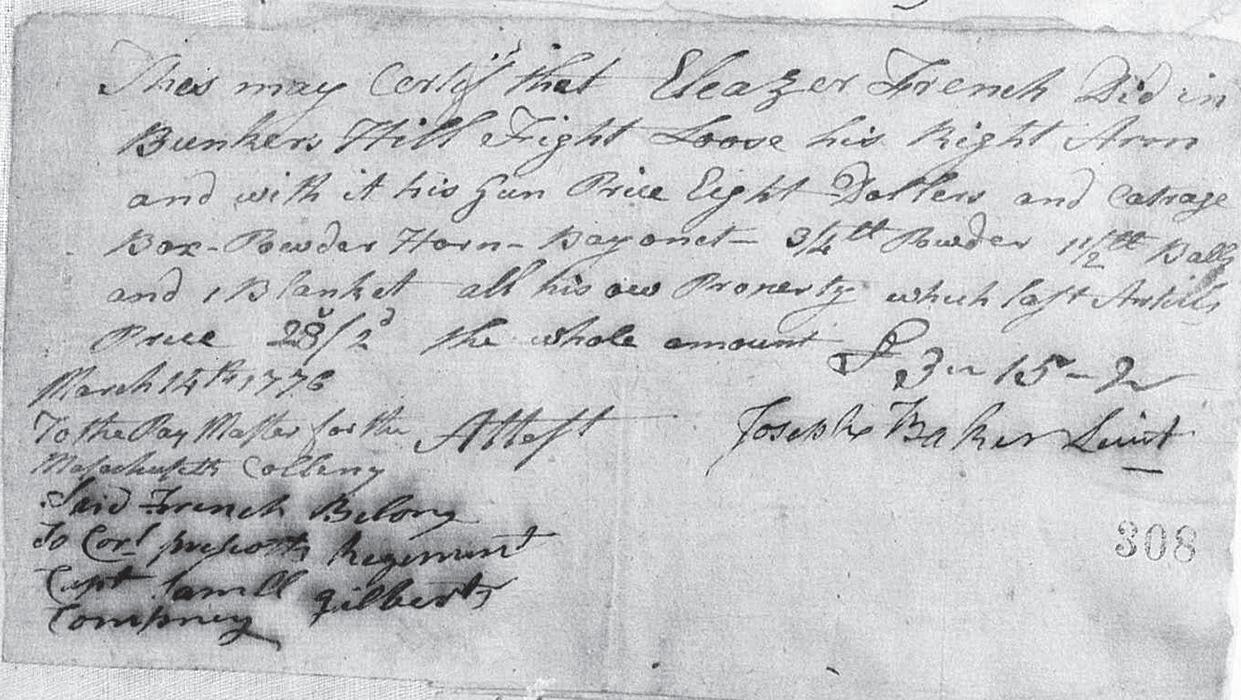 This may Certify that Eleazer French Did in
Bunkers Hill Fight Loose his Right Arm
and with it his Gun Price Eight Dollers and Catrage
Box - Powder Horn - Bayonet - 3/4 lb Powder 1 1/2 lb Balls
and 1 Blanket all his own Property which last Articls
Price 28/2d the whole amount £3 " 15 - 2
March 14th 1776
To the Pay Master for the Attest Joseph Baker Leiut
Massachusetts Colleny
Said French Belong
To Corl prescotts Regement
Capt Samll gilberts
Compney
308